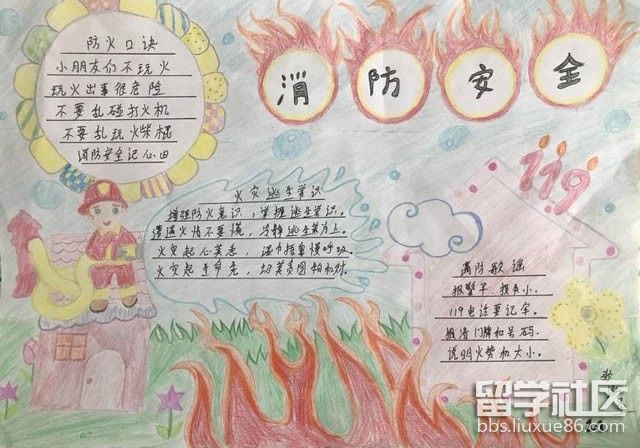 消防安全
防火口诀
小朋友们不玩火
玩火出事很危险
不要乱碰打火机
不要乱玩火柴棍
消防安全记心田
119
火灾逃生常识
增强防火意识，掌握逃生常识。
遭遇火情不要慌，冷静逃生莫为上。
火灾起心莫悉，湿巾捂鼻慢呼吸。
火灾起
消防歌谣
报警早、损失小。
119电话要记牢。
门牌和号码。
说明火势和大小。
留学社区
bbs.liuxue86.com